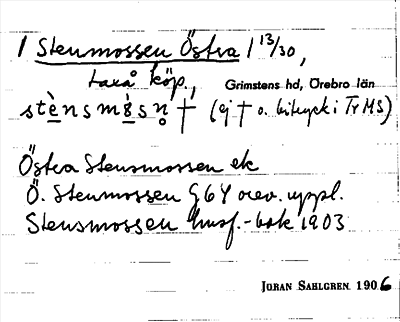 1 Stensmossen Östra 1 13/30,
Laxå köp., Grimstens hd, Örebro län
stènsmå̀sn̥ † (ej † o. bitryck i TrMS)
Östra Stensmossen ek
Ö. Stensmossen G64 orev. uppl.
Stensmossen husf.-bok 1903
JÖRAN SAHLGREN 1906